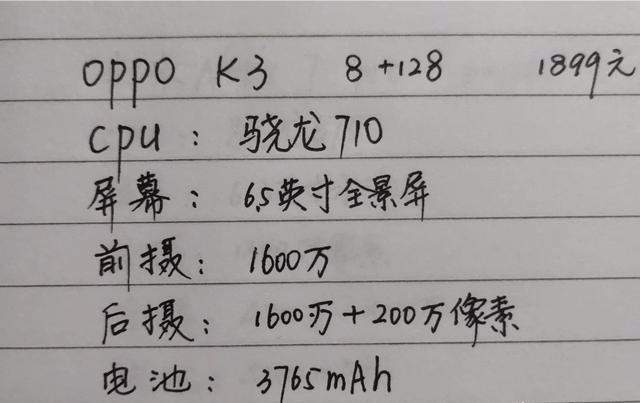 oppo K3 8+128 1899元
cpu：骁龙710
屏幕：6.5英寸全景屏
前摄：1600万
后摄：1600万+200万像素
电池：3765mAh